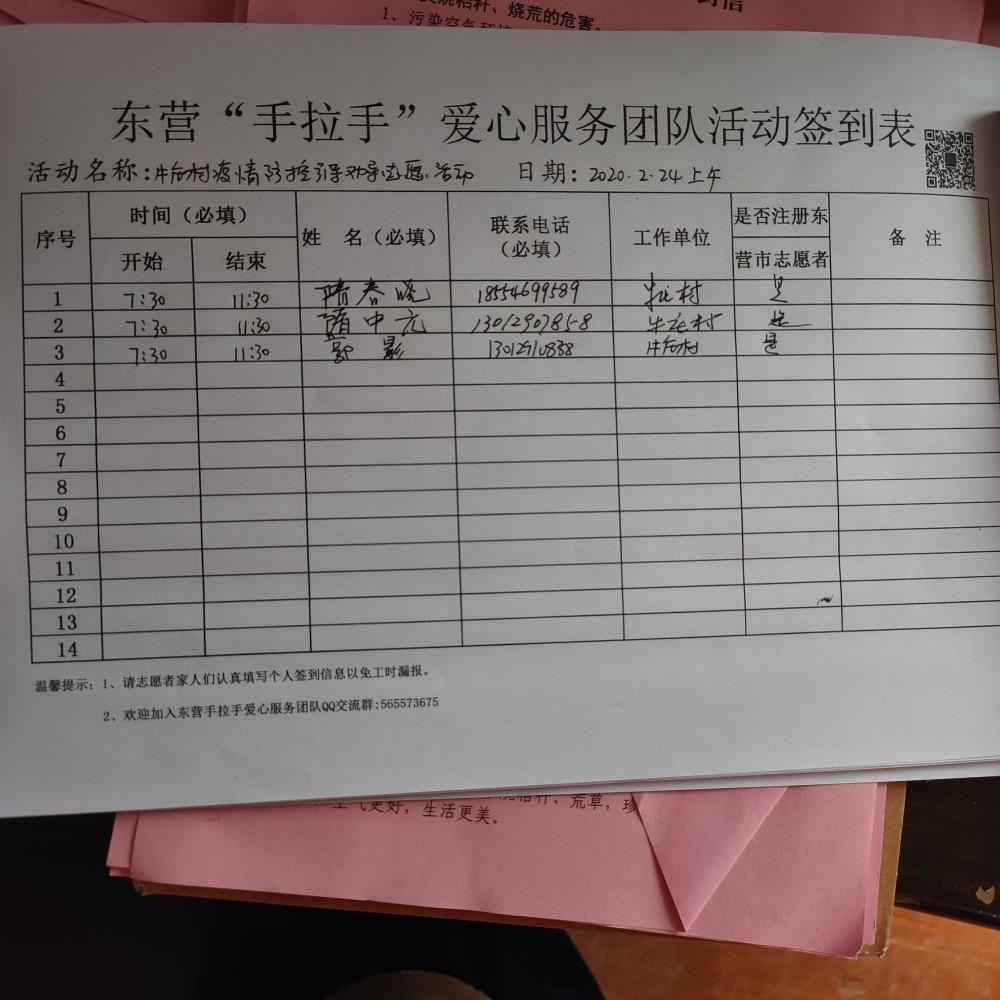 烧秸秆、烧荒的危害。
1、污染空气环境
东营“手拉手”爱心服务团队活动签到表
活动名称:牛庄村疫情防控 志愿活动 日期: 2020.2.24上午
序号 时间（必填） 姓 名（必填） 联系电话（必填） 工作单位 是否注册东营市志愿者 备 注
开始 结束
1 7:30 11:30 隋春晓 18554699589 村 是
2 7:30 11:30 隋中元 13012907858 牛庄村 是
3 7:30 11:30 影 13012910838 村 是
4
5
6
7
8
9
10
11
12
13
14
温馨提示: 1、请志愿者家人们认真填写个人签到信息以免工时漏报。
2、欢迎加入东营手拉手爱心服务团队QQ交流群:565573675
秸秆、荒草，珍
气更好，生活更美。